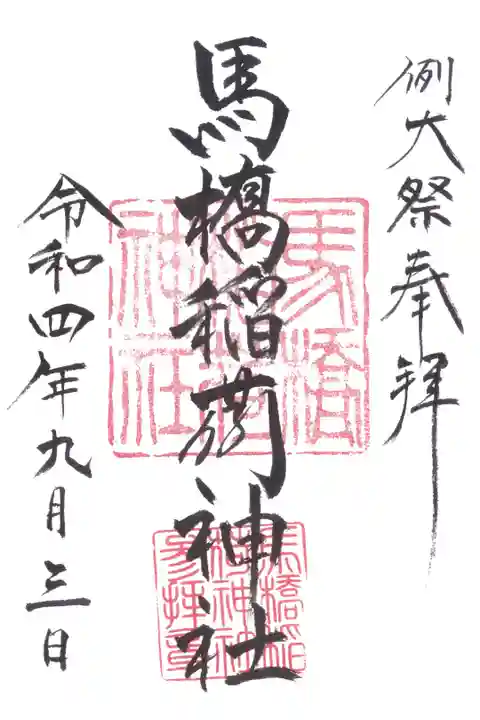 例大祭奉拝
馬橋稲荷神社
令和四年九月三日
馬橋
稲荷
神社
馬橋稲
荷神社
参拝章